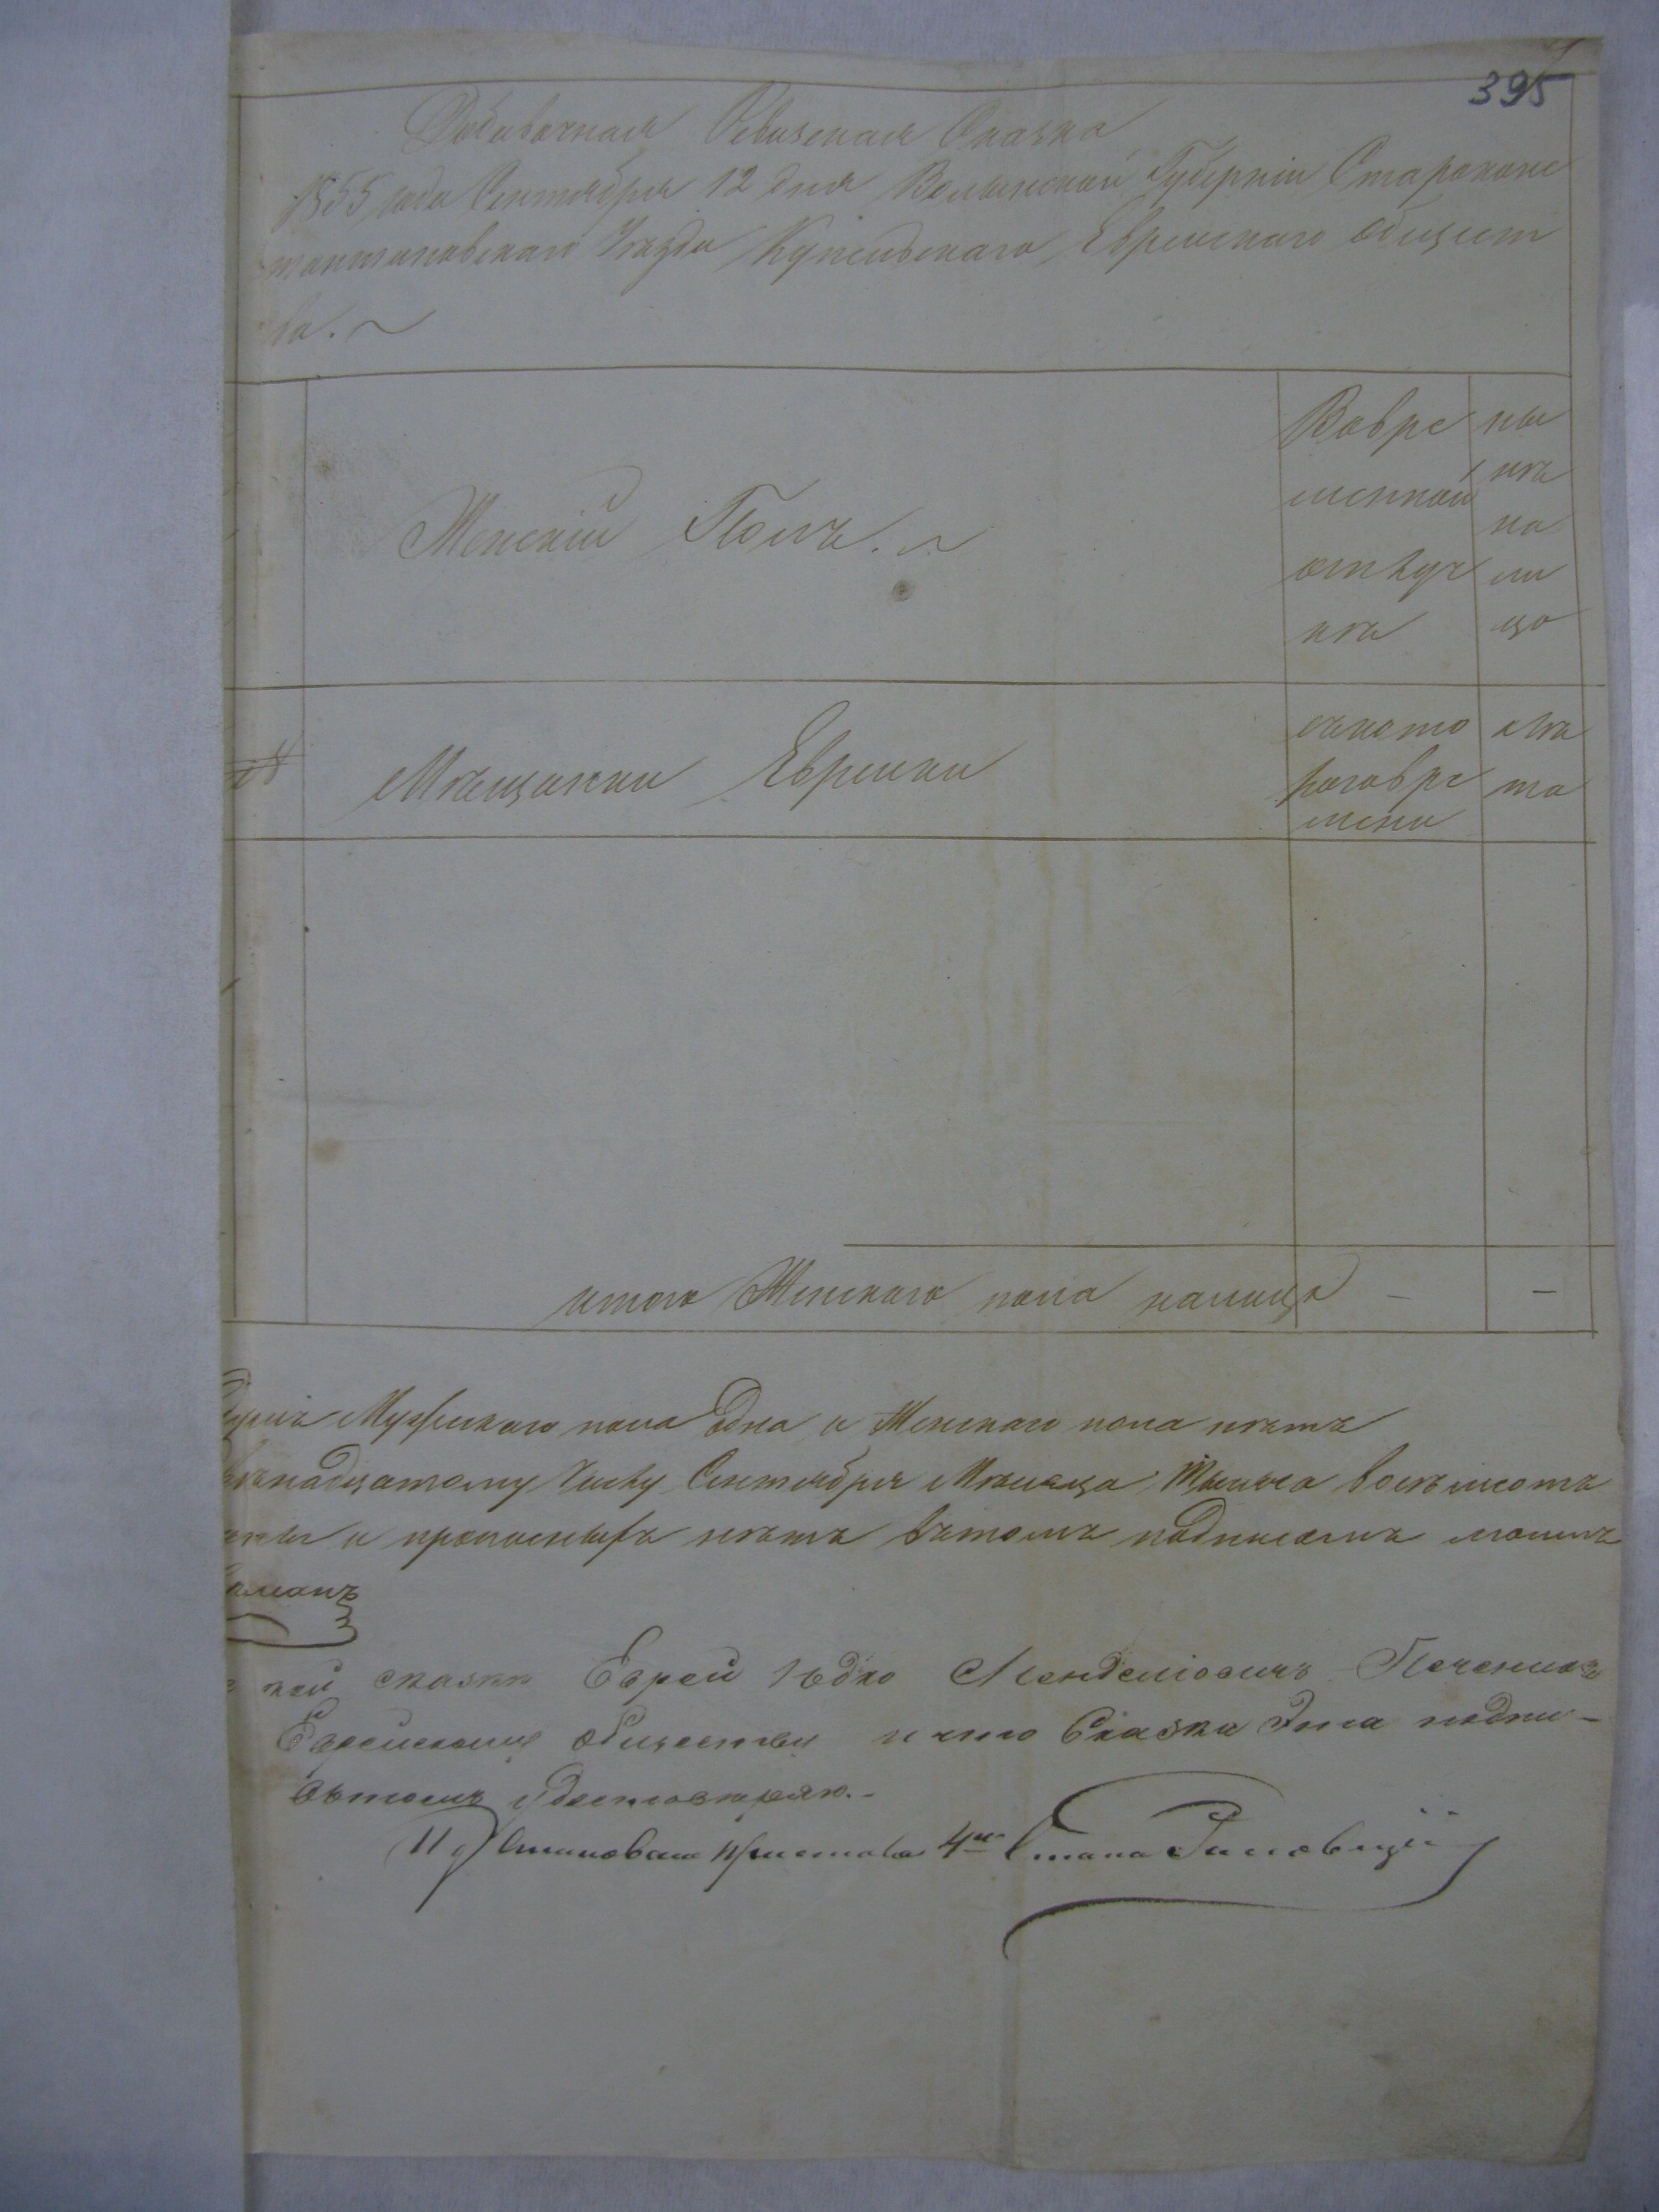 395
Добавочная Ревизская Сказка
1855 года Сентября 12 дня Волынской Губерніи Старокон
тантиновскаго Уѣзда Купельскаго Еврейскаго общест
ва.
Женскій Полъ.
Вовре
менной
отлуч
кѣ
ны
нѣ
на
ли
цо
Мѣщанки Еврейки
съкото
раговре
мени
лѣ
та
итого Женскаго пола налицо — —
Мужескаго пола одна а Женскаго пола нѣтъ
надцатому Числу Сентября Мѣсяца Тысяча восемьсотъ
и прописныхъ нѣтъ вътомъ подписомъ моимъ
кой сказки Еврей Юдко Менделіовичъ
Еврейскому обществу и что Сказка Эта подпи-
вътомъ удостовѣряю.-
Становаго Пристава 4го Стана